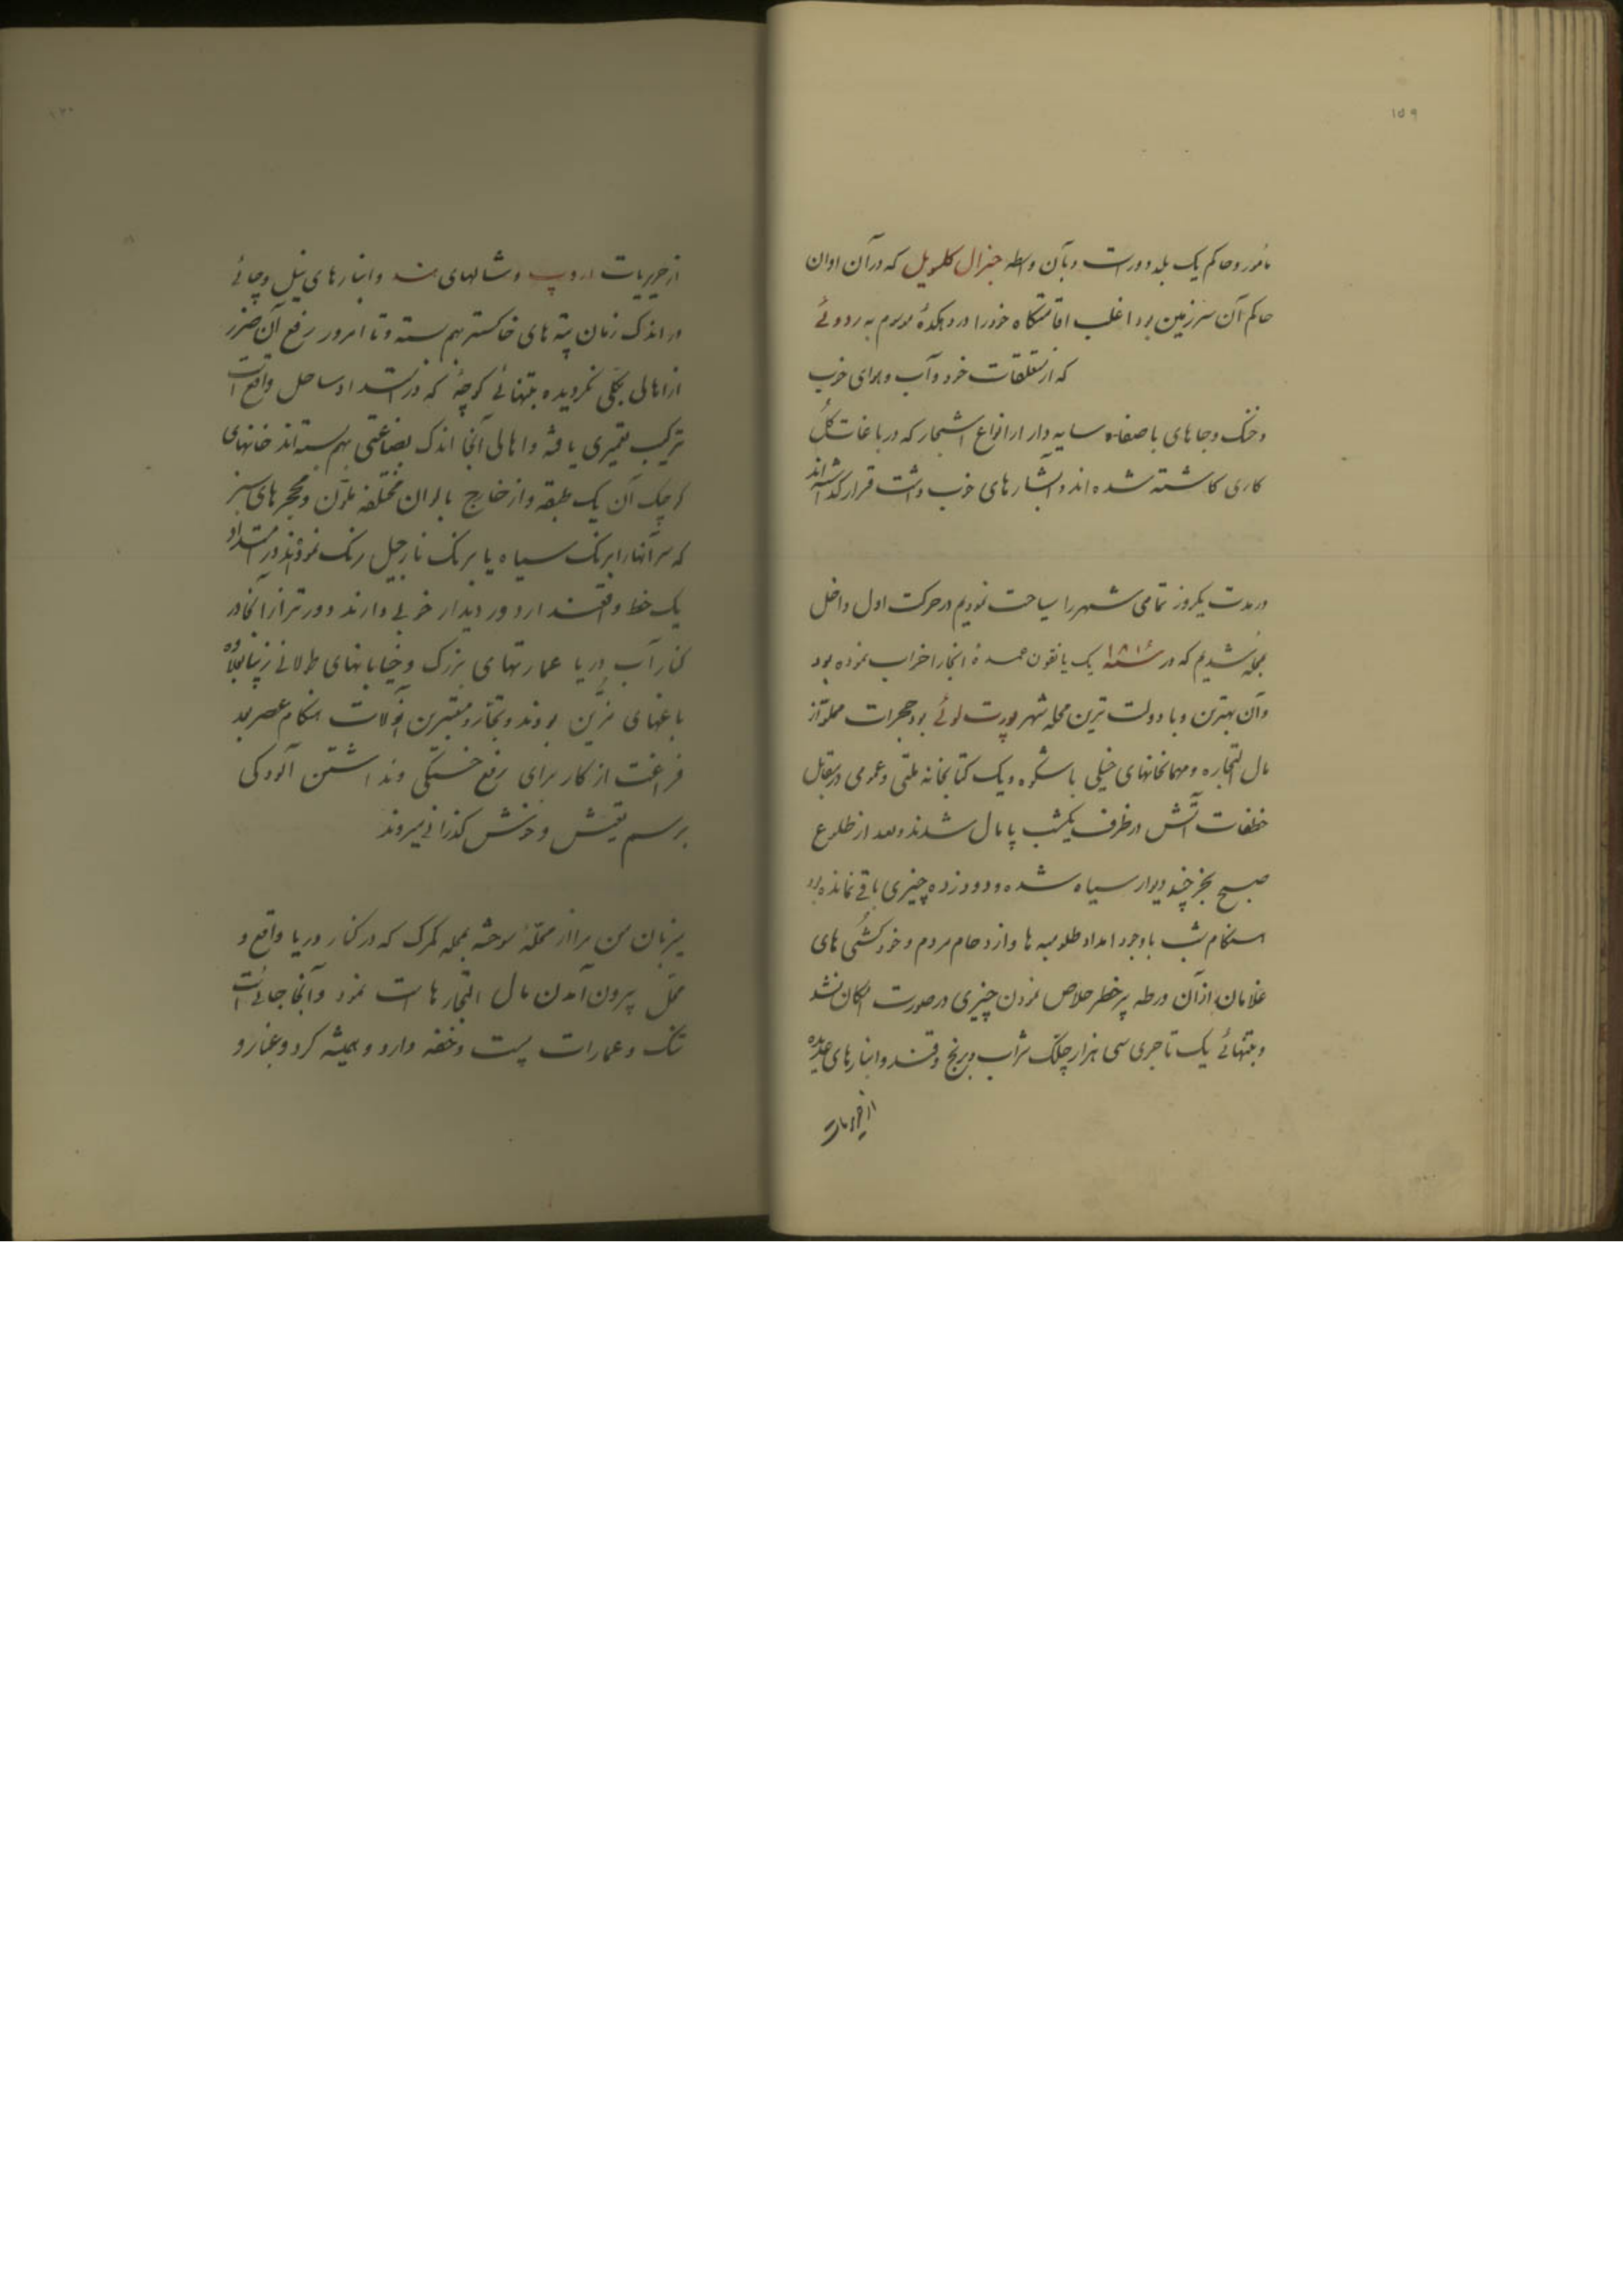 ۱۵۹
مأمور و حاکم یک بلد دور است و بآن واسطه جنرال کلویل که در آن اوان
حاکم آن سرزمین بود اغلب اقامتگاه خود را در دهکدهٔ موسوم به ردوئی
که از متعلقات خود و آب و هوای خوب
و خنک و جاهای باصفا و سایه دار از انواع اشجار که در باغات گل
کاری کاشته شده اند و آبشارهای خوب داشت قرار گذاشته اند
در مدت یکروز تمامی شهر را سیاحت نمودیم در حرکت اول داخل
محله شدیم که در سنهٔ ۱۸۱۶ یک یانقون عمدهٔ آنجا را خراب نموده بود
و آن بهترین و با دولت ترین محله شهر پورت لوئی بود حجرات مملو از
مال التجاره و مهمانخانهای خیلی باشکوه و یک کتابخانه ملتی و عمومی در مقابل
خطفات آتش در ظرف یکشب پامال شدند و بعد از طلوع
صبح بجز چند دیوار سیاه شده و دود زده چیزی باقی نمانده بود
هنگام شب با وجود امداد طلومبه ها و ازدحام مردم و خودکشی های
غلامان از آن ورطه پرخطر خلاص نمودن چیزی در صورت امکان نشد
و بتنهائی یک تاجری سی هزار چلک شراب و برنج و قند و انبارهای عدیده
از حریرات
۱۶۰
از حریریات اروپ و شالهای هند و انبارهای نیل و چائی
در اندک زمان پته های خاکستر بهم بسته و تا امروز رفع آن ضرر
از اهالی بکلی نگردیده بتنهائی کوچهٔ که در امتداد ساحل واقع است
ترکیب تعمیری یافته و اهالی آنجا اندک بضاعتی بهم بسته اند خانهای
کوچک آن یک طبقه و از خارج بالوان مختلفه ملون و محجرهای سبز
که سر آنها را برنک سیاه یا برنک نارجیل رنک نموده اند در امتداد
یک خط واقعند از دور دیدار خوبی دارند دورتر از آنجا در
کنار آب دریا عمارتهای بزرک و خیابانهای طولانی زیبا بعلاوه
باغهای مزین بودند و تجار و معتبرین آنولایت هنگام عصر بعد
فراغت از کار برای رفع خستگی و نداشتن آلودگی
برسم تعیش و خوش گذرانی میروند
میزبان من مرا از محلهٔ سوخته بمحله کمرک که در کنار دریا واقع و
محل بیرون آمدن مال التجارها است نمود و آنجا جائی است
تنک و عمارات پست و خفه دارد و همیشه کرد و غبار و